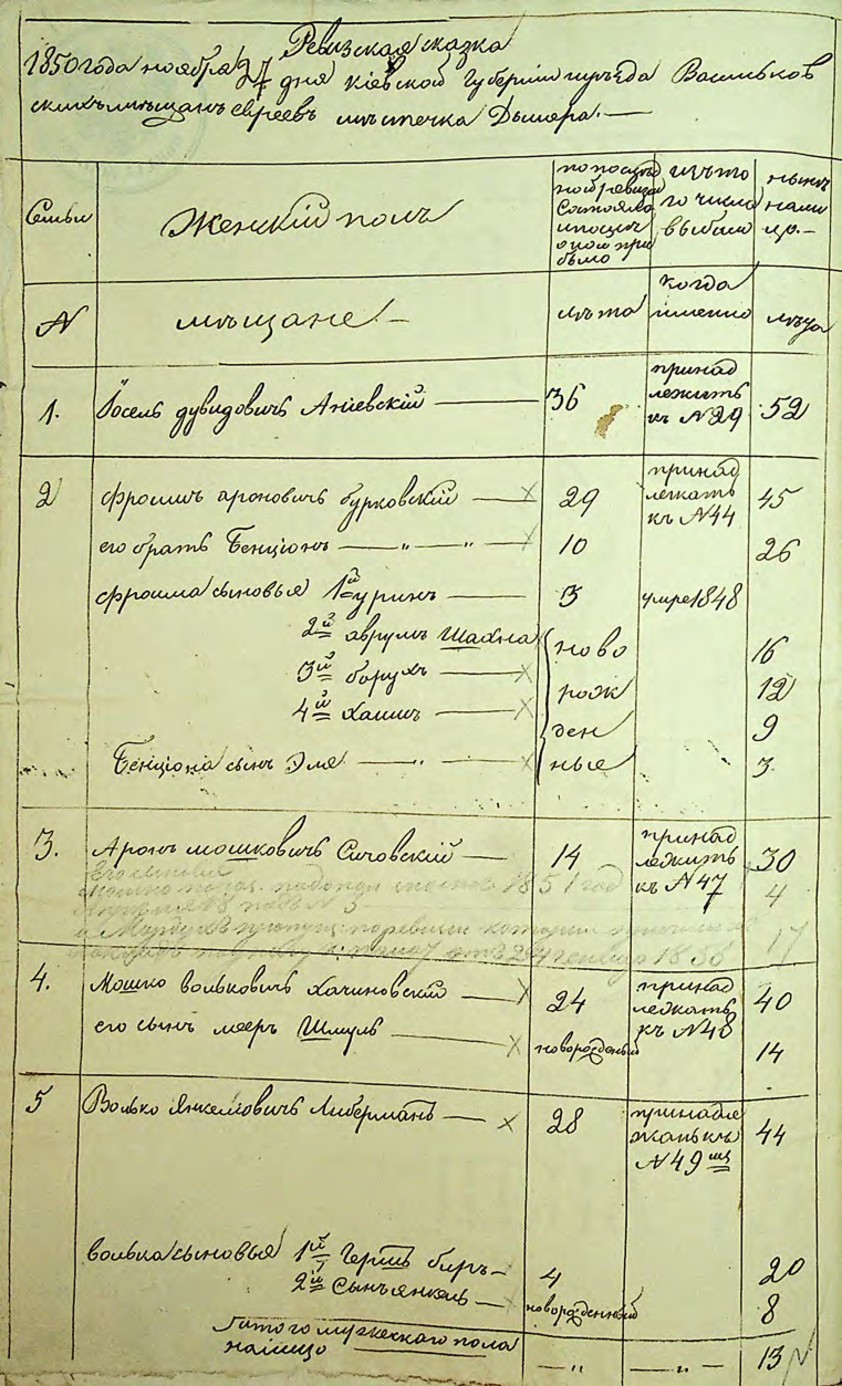 Ревизская сказка
1850 года ноября 27 дня Кіевской Губерніи уезда Васильков
скихъ мещанъ евреевъ местечка Дымера.—
Семьи
Женскій полъ
по послед
ней ревизіи
состояло
и после
оной при
было
изъ то
го числа
выбыло
ныне
нали
цо.—
№
мещане.—
лета
когда
именно
лета
1. Іосель дувидовичъ Аніевскій — 36 принад
лежитъ
къ №29 52
2 фроимъ ароновичъ бурковскій — 29 принад
лежатъ
къ №44 45
его братъ Бенціонъ — " — " — 10 26
фроима сыновья 1й уринъ — 3 умре 1848
2й аврумъ Шахна ново 16
3й борухъ — рож 12
4й хаимъ — ден 9
Бенціона сынъ Эля — " — ные 3
3. Аронъ мошковичъ Сиговскій — 14 принад
лежитъ
къ №47 30
1851 год 4
17
4. Мошко вольковичъ Хачиновскій — 24 принад
лежатъ
къ №48 40
его сынъ меер Шмуль — новорожденый 14
5 Волько Янкелювичъ Либерманъ — 28 принадле
жатъ къ
№49 44
волька сыновья 1й Гершъ беръ — 4 20
2й Сынъ янкель — новорожденный 8
Итого мужескаго пола
налицо — " — — " — 13